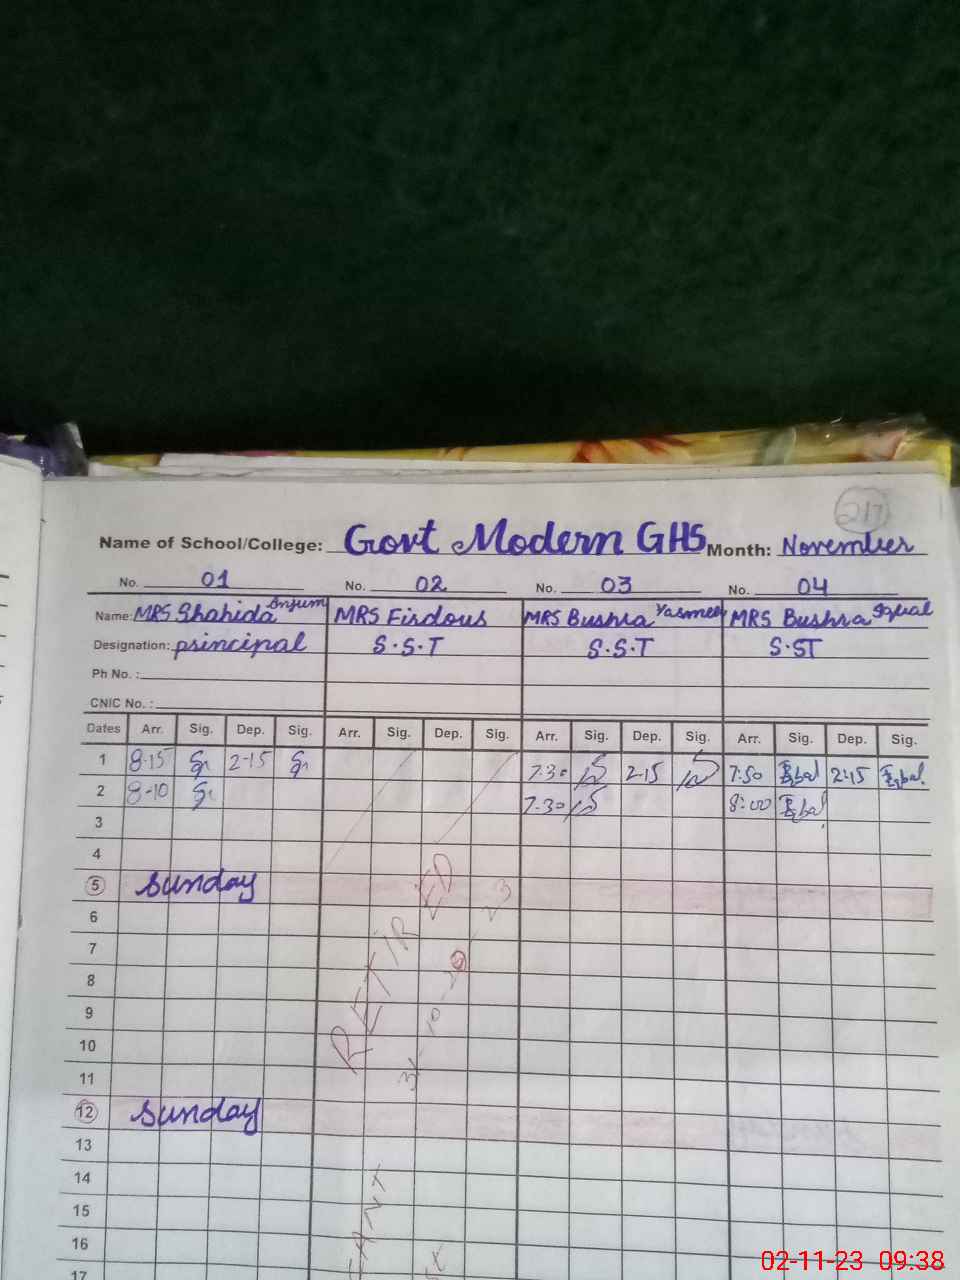 217
Name of School/College: Govt Modern GHS Month: November
No. 01 No. 02 No. 03 No. 04
Name: MRS Shahida Anjum MRS Firdous MRS Bushra Yasmeen MRS Bushra Iqbal
Designation: principal S.S.T S.S.T S.ST
Ph No. :
CNIC No. :
Dates Arr. Sig. Dep. Sig. Arr. Sig. Dep. Sig. Arr. Sig. Dep. Sig. Arr. Sig. Dep. Sig.
1 8-15 2-15 7.30 2-15 7:50 Iqbal 2:15 Iqbal
2 8-10 7.30 8:00 Iqbal
3
4
5 Sunday
6
7
8
9
10
11
12 Sunday
13
14
15
16
17
RETIRED
31-10-2023
02-11-23 09:38